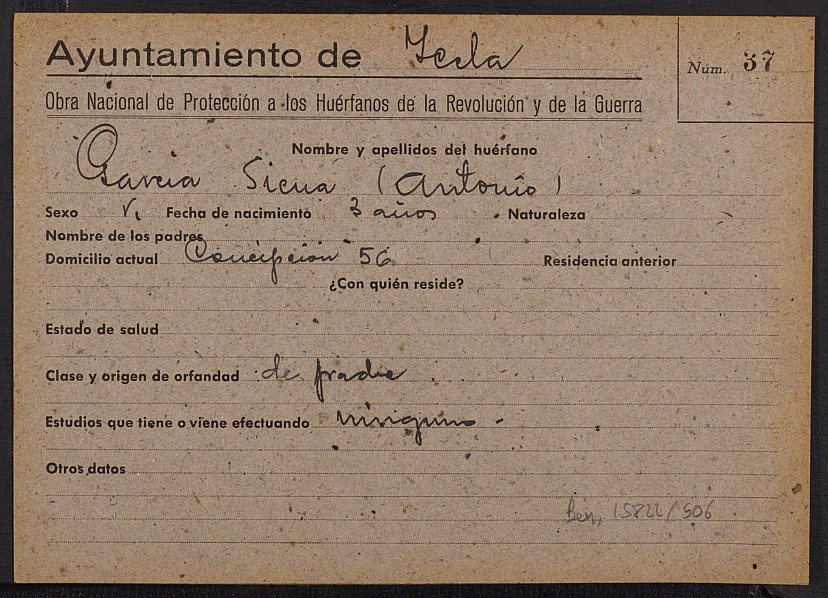 Ayuntamiento de Yecla
Núm. 37
Obra Nacional de Protección a los Huérfanos de la Revolución y de la Guerra
Nombre y apellidos del huérfano
Garcia Sicua (Antonio)
Sexo V. Fecha de nacimiento 3 años. Naturaleza
Nombre de los padres
Domicilio actual Concepcion 56 Residencia anterior
¿Con quién reside?
Estado de salud
Clase y origen de orfandad de pradre.
Estudios que tiene o viene efectuando ninguno -
Otros datos
Ben, 15822/906